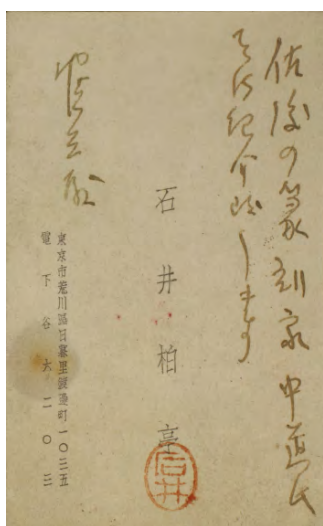 佐渡の篆刻家中
を御紹介致します
石井柏亭
石井
東京市荒川區日暮里渡邊町一〇三五
電下谷六二〇三